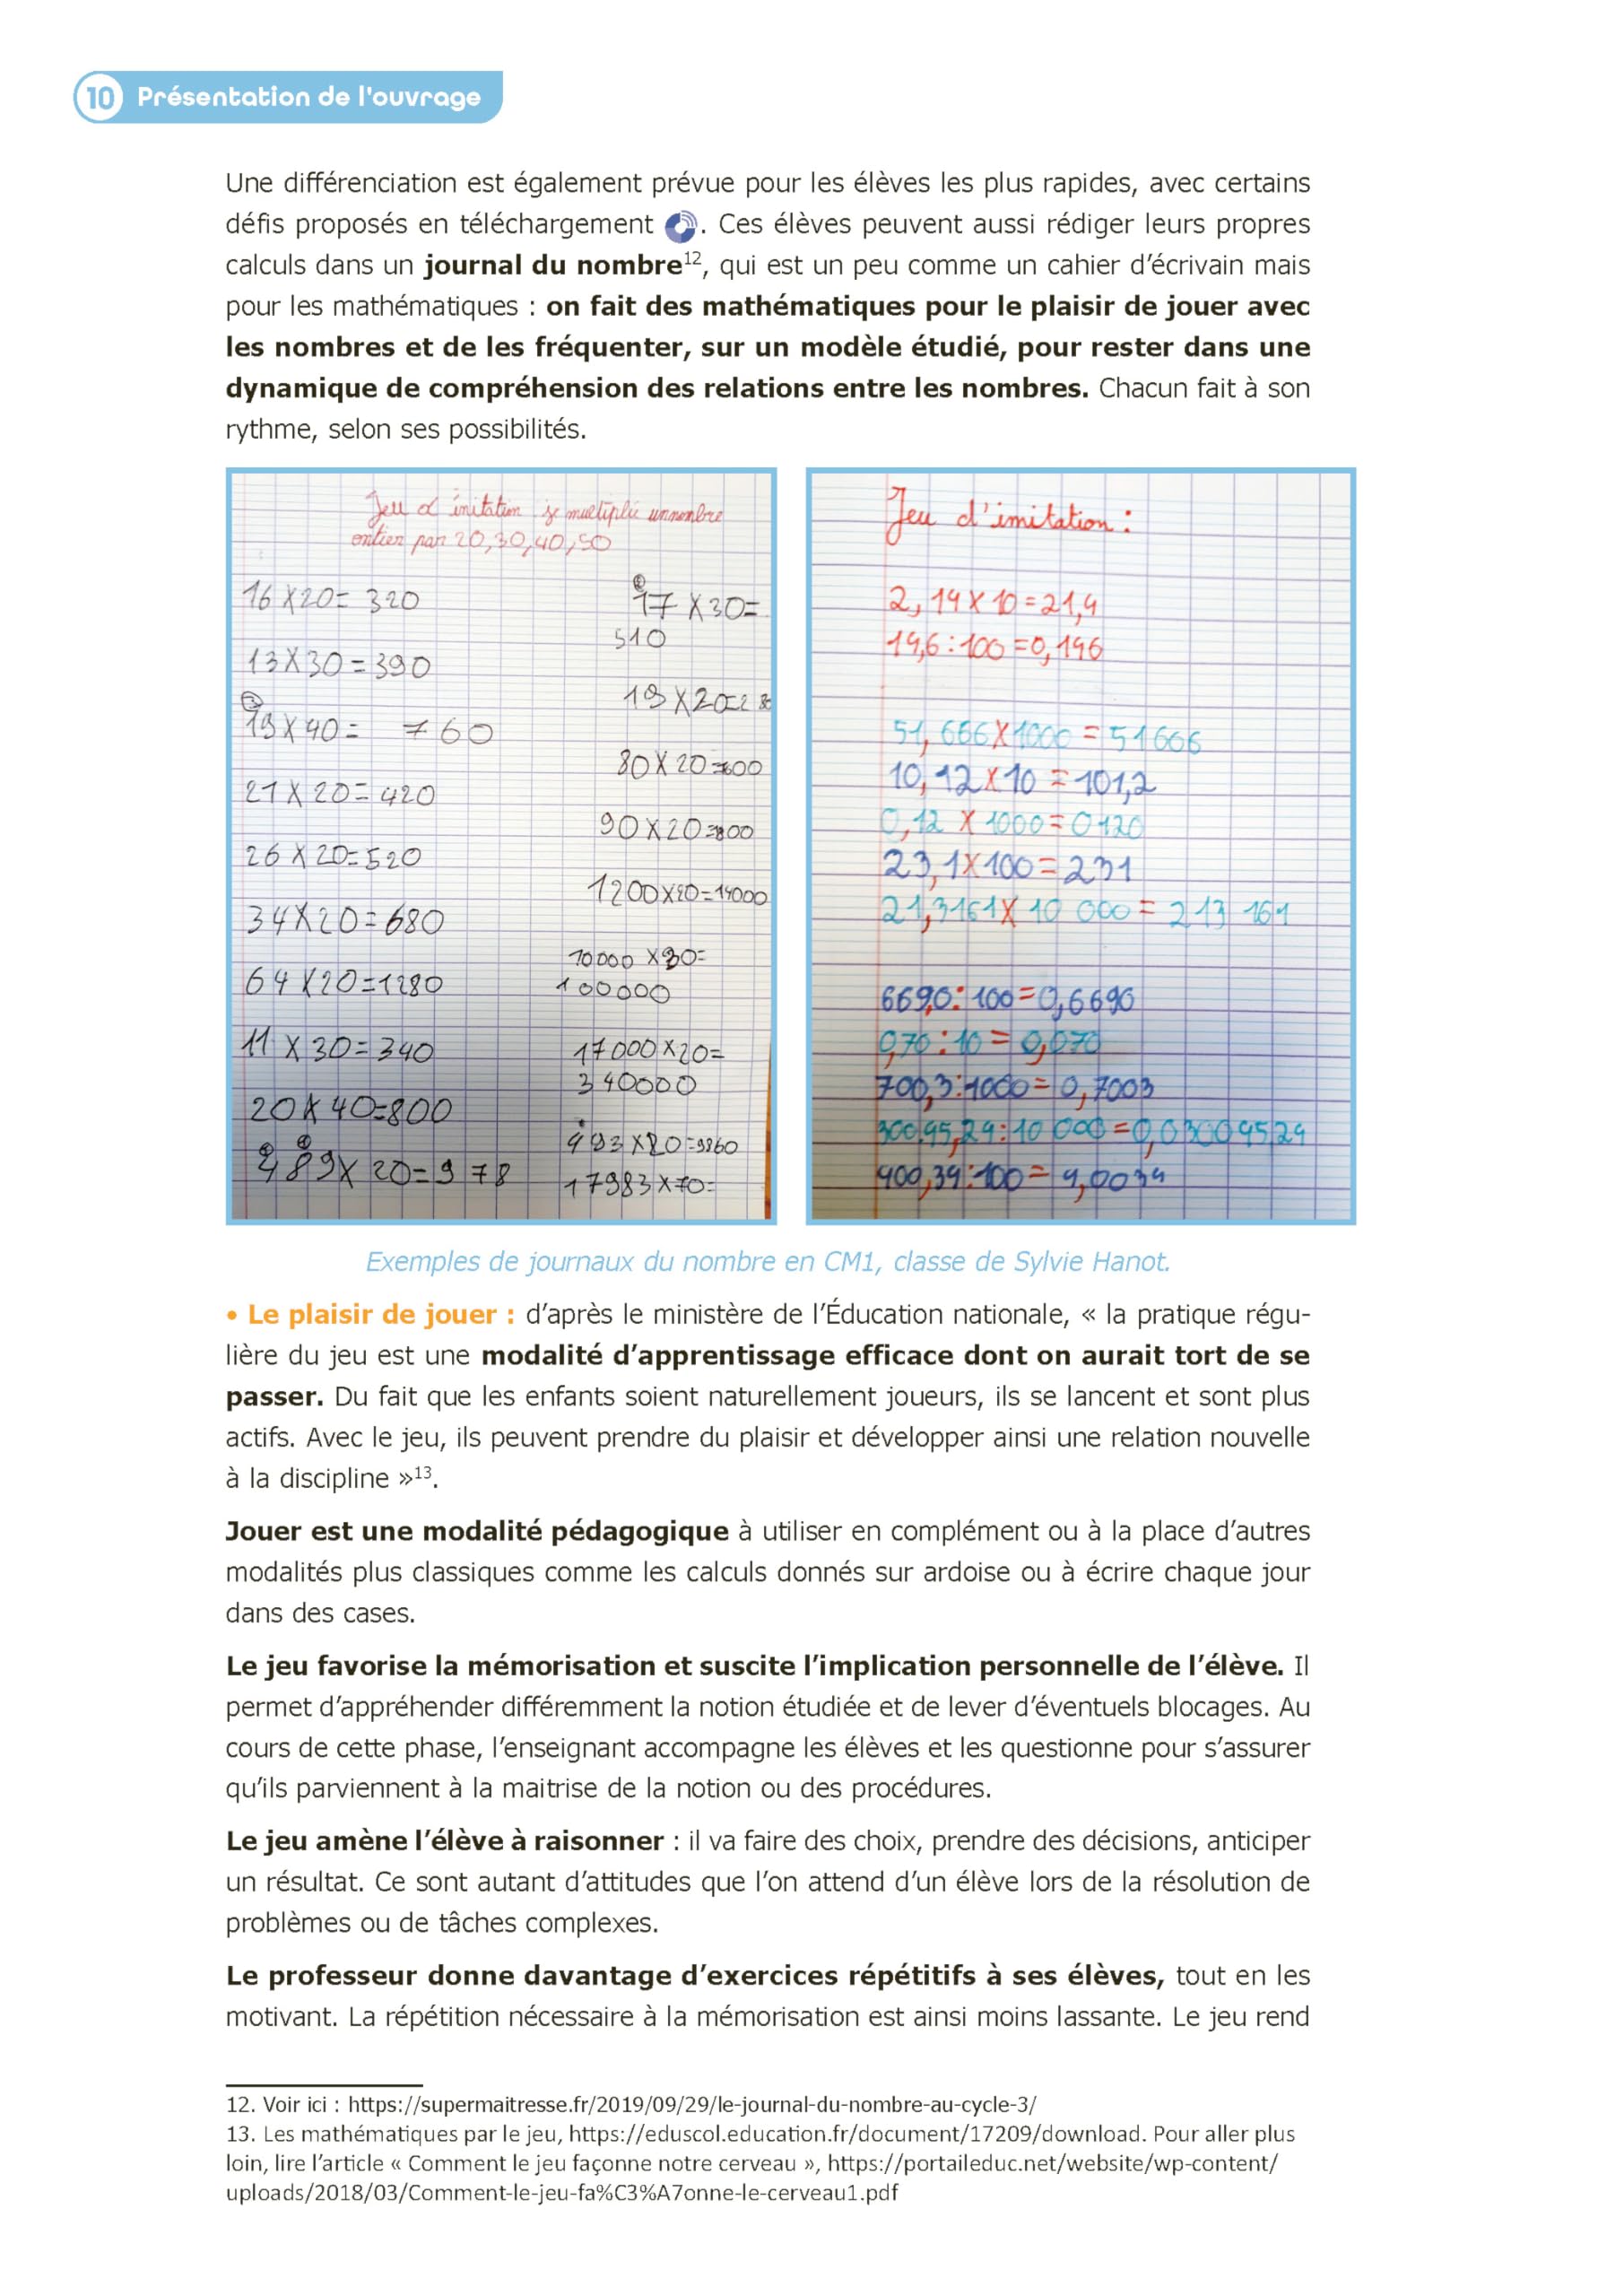 10 Présentation de l'ouvrage
Une différenciation est également prévue pour les élèves les plus rapides, avec certains
défis proposés en téléchargement . Ces élèves peuvent aussi rédiger leurs propres
calculs dans un journal du nombre12, qui est un peu comme un cahier d'écrivain mais
pour les mathématiques : on fait des mathématiques pour le plaisir de jouer avec
les nombres et de les fréquenter, sur un modèle étudié, pour rester dans une
dynamique de compréhension des relations entre les nombres. Chacun fait à son
rythme, selon ses possibilités.
Jeu d'initation je multiplie un nombre
entier par 20,30,40,50
16 X 20 = 320
13 X 30 = 390
19 X 40 = 760
21 X 20 = 420
26 X 20 = 520
34 X 20 = 680
64 X 20 = 1280
11 X 30 = 340
20 X 40 = 800
489 X 20 = 9 78
17 X 30 =
510
19 X 20
80 X 20
90 X 20
1200 X 20 = 14000
10000 X 30 =
100000
17000 X 20 =
340000
493 X 20 = 9860
17983 X 70 =
Jeu d'imitation :
2,14 X 10 = 21,4
19,6 : 100 = 0,196
51,666 X 1000 = 51666
10,12 X 10 = 101,2
0,12 X 1000 = 0120
23,1 X 100 = 231
21,3161 X 10 000 = 213 161
6690 : 100 = 0,6690
0,70 : 10 = 0,070
700,3 : 1000 = 0,7003
30095,29 : 10 000 = 0,03009529
400,34 : 100 = 4,0034
Exemples de journaux du nombre en CM1, classe de Sylvie Hanot.
• Le plaisir de jouer : d'après le ministère de l'Éducation nationale, « la pratique régu-
lière du jeu est une modalité d'apprentissage efficace dont on aurait tort de se
passer. Du fait que les enfants soient naturellement joueurs, ils se lancent et sont plus
actifs. Avec le jeu, ils peuvent prendre du plaisir et développer ainsi une relation nouvelle
à la discipline »13.
Jouer est une modalité pédagogique à utiliser en complément ou à la place d'autres
modalités plus classiques comme les calculs donnés sur ardoise ou à écrire chaque jour
dans des cases.
Le jeu favorise la mémorisation et suscite l'implication personnelle de l'élève. Il
permet d'appréhender différemment la notion étudiée et de lever d'éventuels blocages. Au
cours de cette phase, l'enseignant accompagne les élèves et les questionne pour s'assurer
qu'ils parviennent à la maitrise de la notion ou des procédures.
Le jeu amène l'élève à raisonner : il va faire des choix, prendre des décisions, anticiper
un résultat. Ce sont autant d'attitudes que l'on attend d'un élève lors de la résolution de
problèmes ou de tâches complexes.
Le professeur donne davantage d'exercices répétitifs à ses élèves, tout en les
motivant. La répétition nécessaire à la mémorisation est ainsi moins lassante. Le jeu rend
12. Voir ici : https://supermaitresse.fr/2019/09/29/le-journal-du-nombre-au-cycle-3/
13. Les mathématiques par le jeu, https://eduscol.education.fr/document/17209/download. Pour aller plus
loin, lire l'article « Comment le jeu façonne notre cerveau », https://portaileduc.net/website/wp-content/
uploads/2018/03/Comment-le-jeu-fa%C3%A7onne-le-cerveau1.pdf